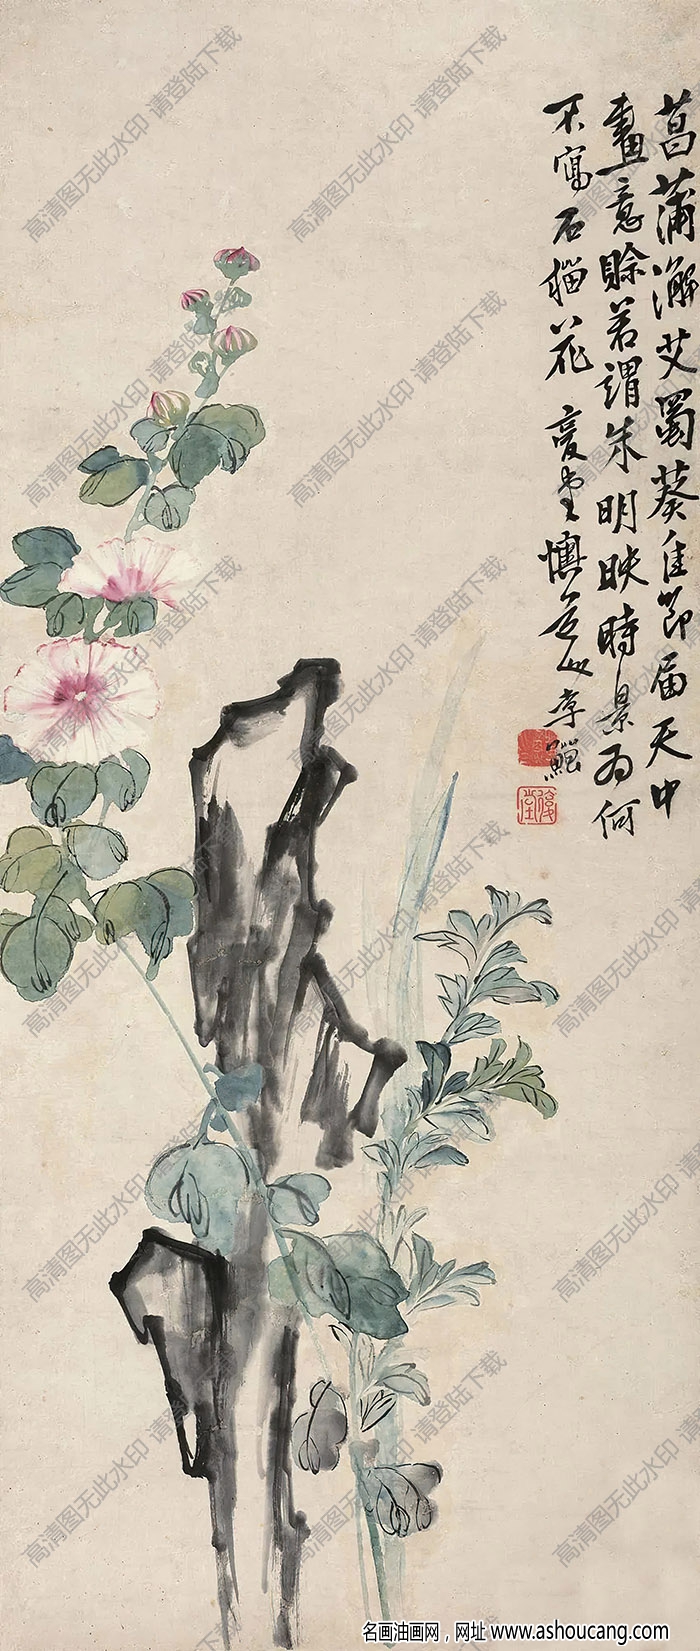 菖蒲澥艾蜀葵佳節届天中
畫意賖若謂朱明映時景為何
不寫石榴花 復堂懊道人李鱓
復堂
高清图无此水印 请登陆下载
名画油画网，网址 www.ashoucang.com